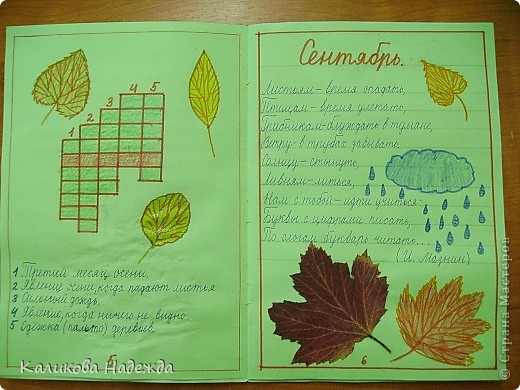 4 5
3
2
1
1 Третий месяц осени.
2 Явление осени, когда падают листья
3 Сильный дождь.
4 Явление, когда ничего не видно
5 Одёжка (пальто) деревьев
5
Каликова Надежда
Сентябрь.
Листьям - время опадать,
Птицам - время улетать,
Грибникам - блуждать в тумане,
Ветру - в трубах завывать.
Солнцу - стынуть,
Ливням - литься,
Нам с тобой - идти учиться:
Буквы с цифрами писать,
По слогам букварь читать...
(И. Мазнин)
6
© Страна Мастеров